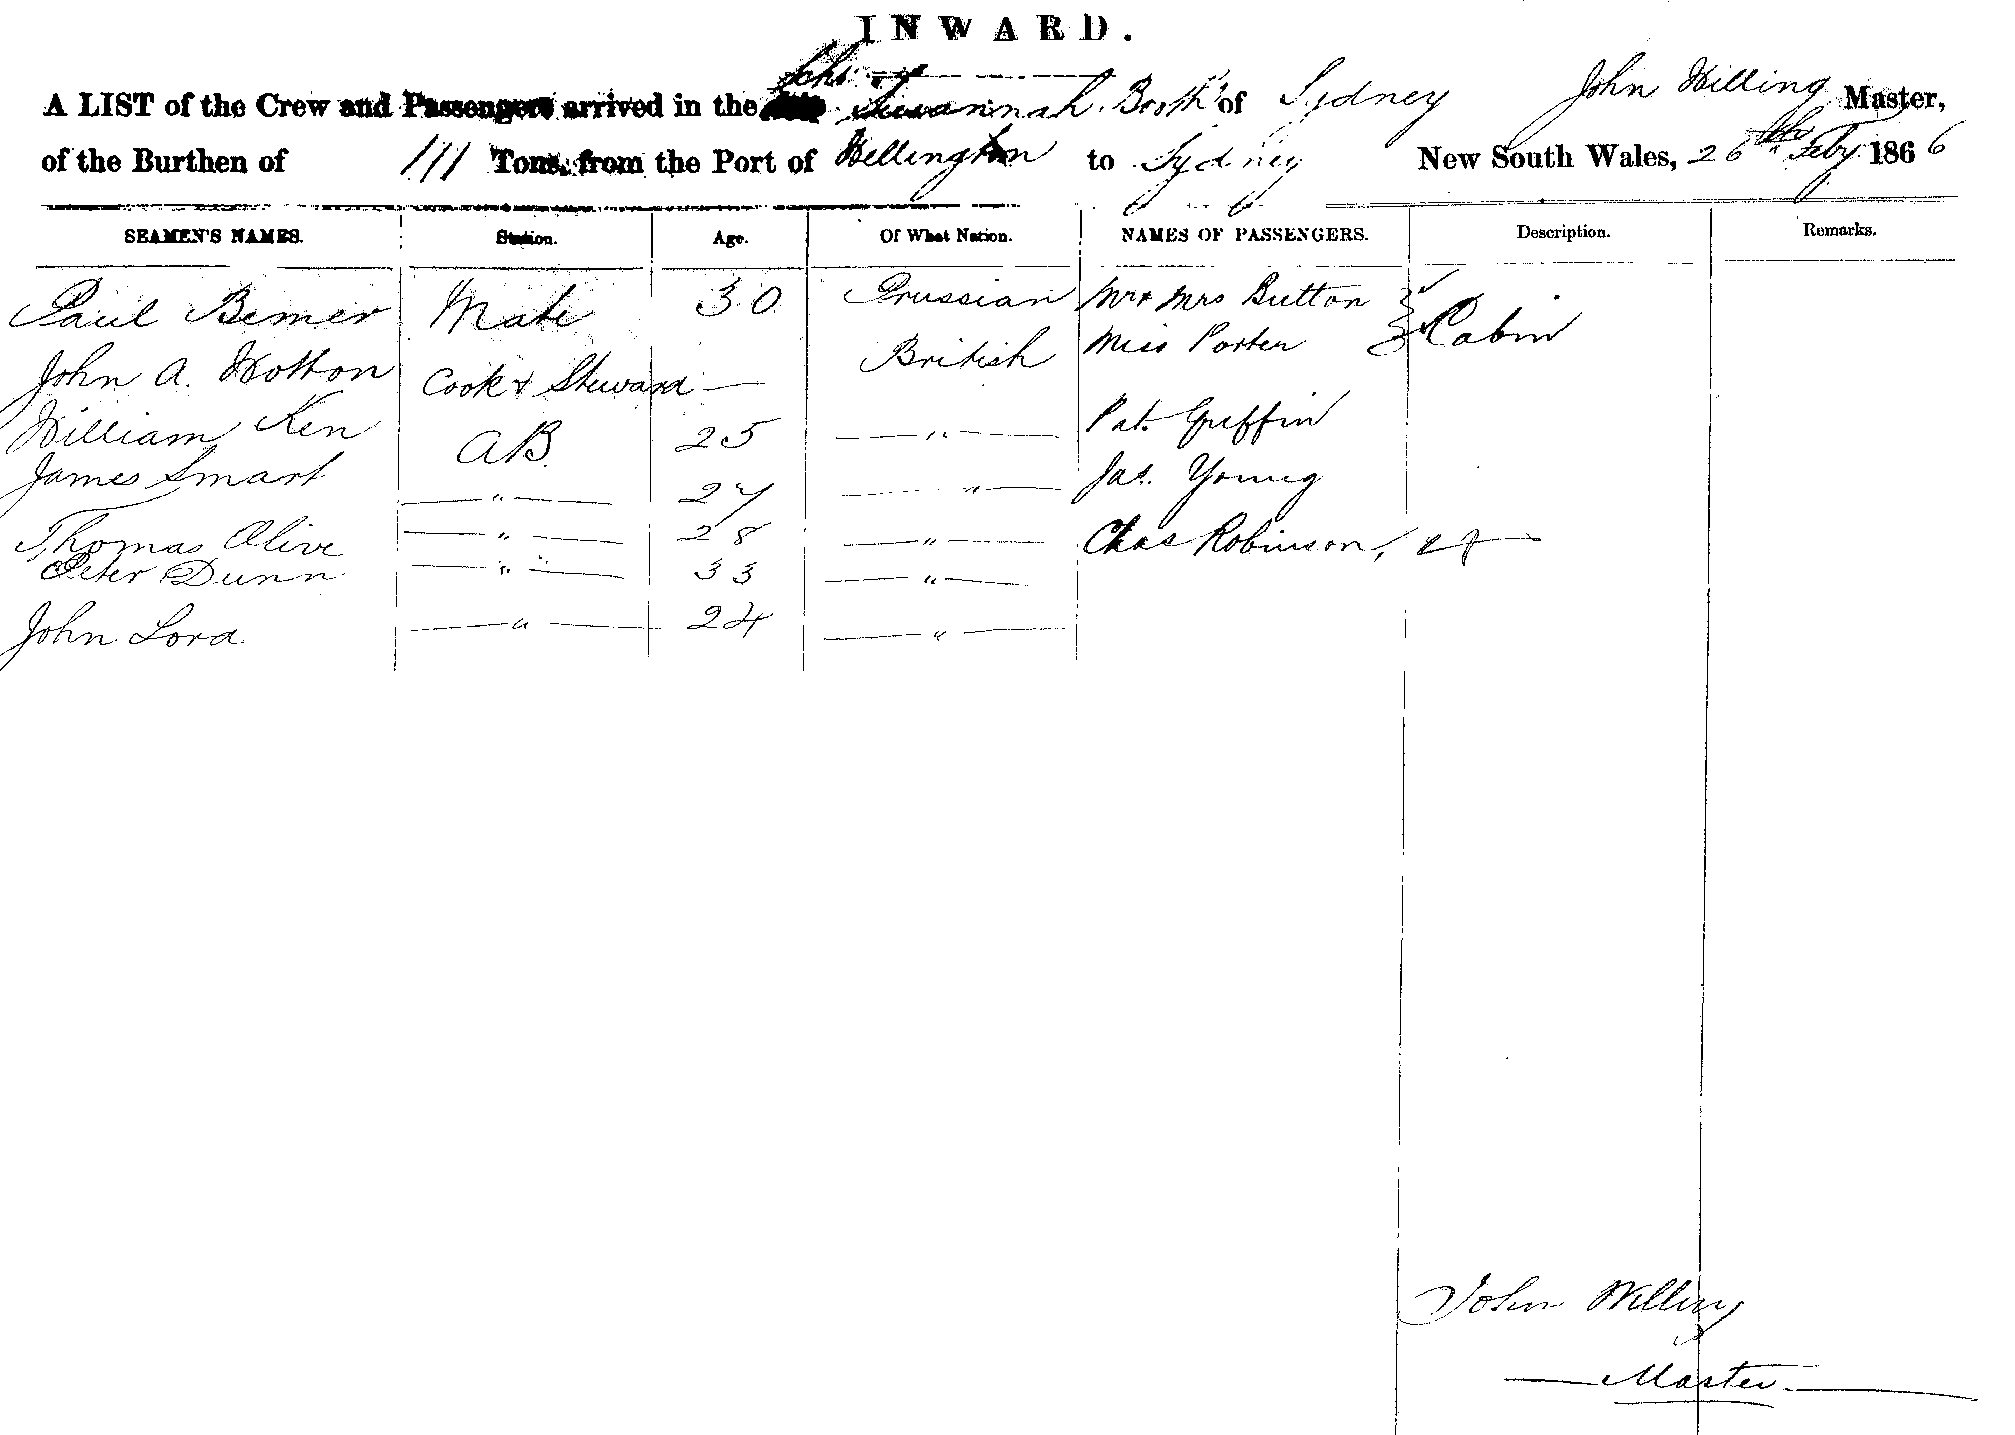 INWARD.
A LIST of the Crew and Passengers arrived in the Schr Susannah Booth of Sydney John Willing Master,
of the Burthen of 111 Tons, from the Port of Wellington to Sydney New South Wales, 26th Feby 1866
SEAMEN'S NAMES. Station. Age. Of What Nation. NAMES OF PASSENGERS. Description. Remarks.
Paul Bemer Mate 30 Prussian Mr & Mrs Button
John A. Hotton Cook & Steward — British Miss Porter Cabin
William Ken AB. 25 " Pat. Griffin
James Smart " 27 " Jas. Young
Thomas Olive " 28 " Chas Robinson,
Peter Dunn " 33 "
John Lord " 24 "
John Willing
Master